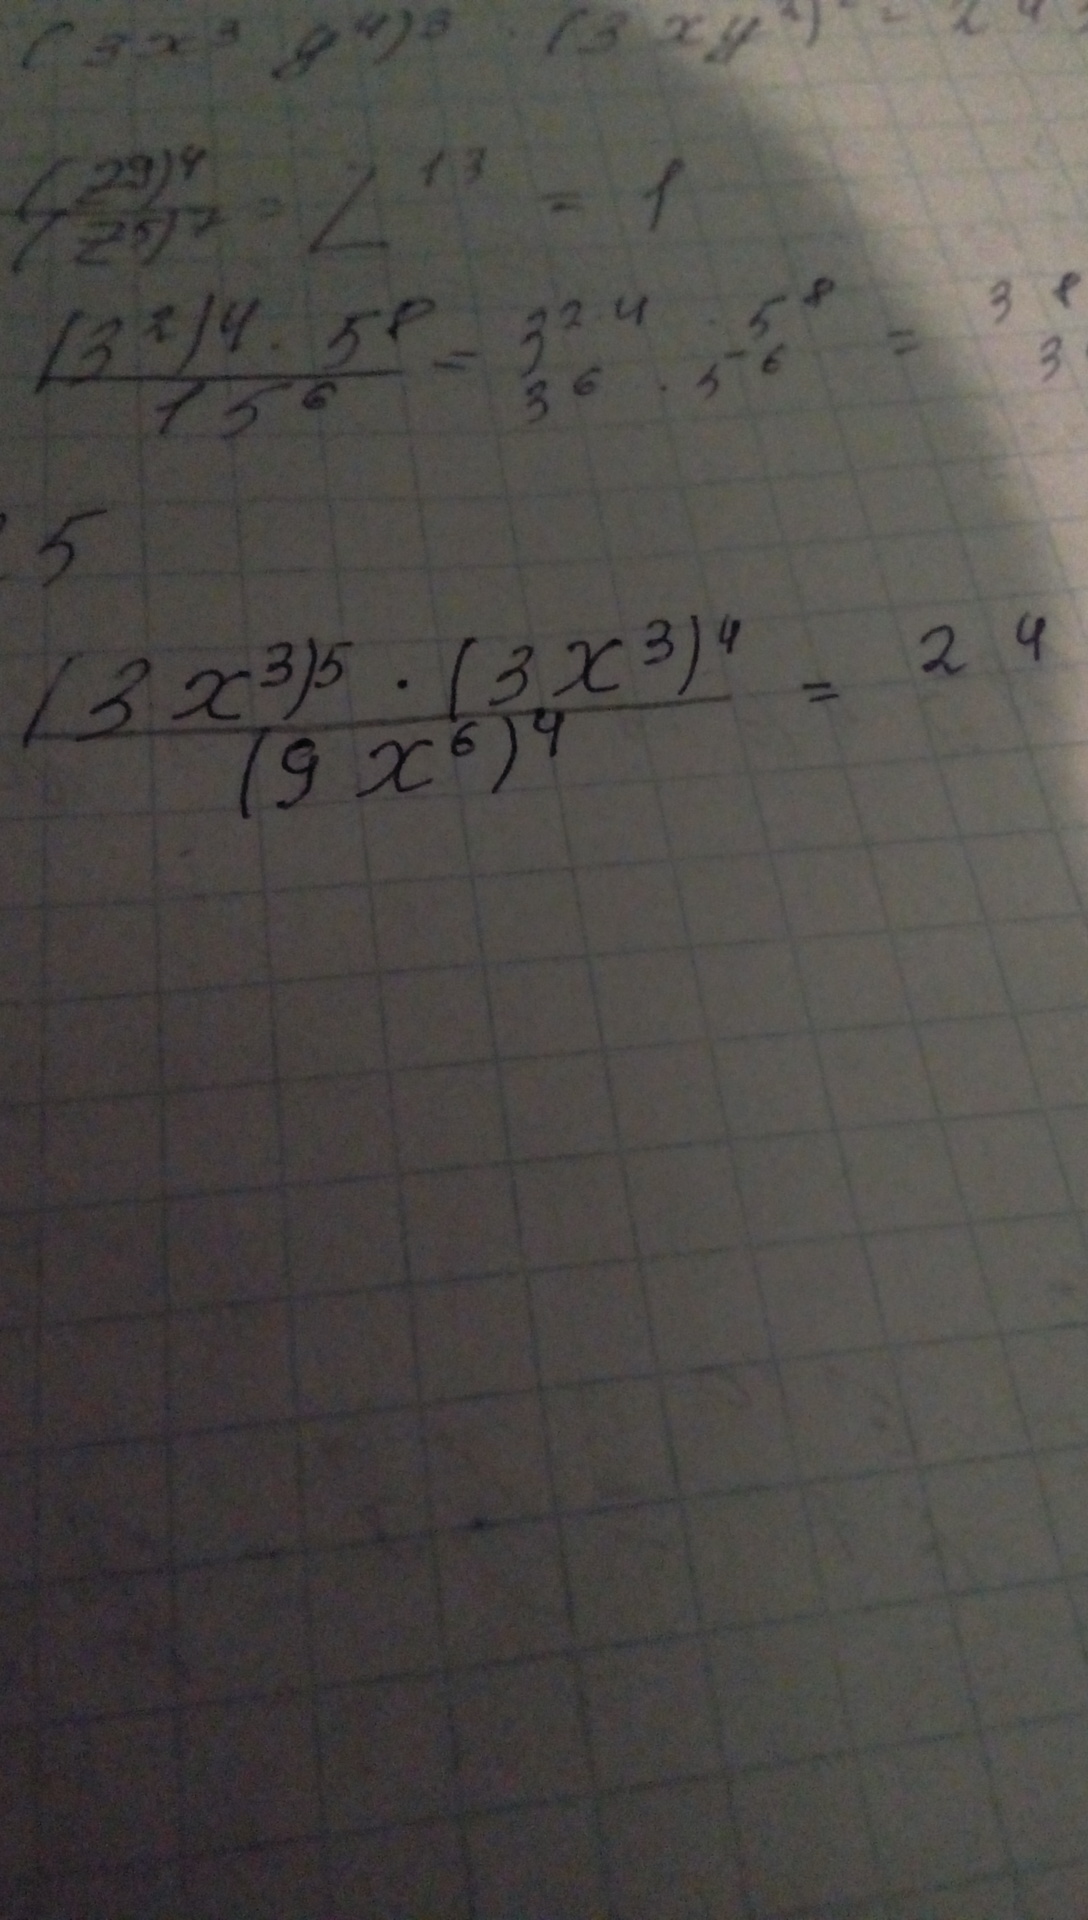 (3x³ y⁴)³ · (3xy²) = 2⁴
(z⁹)⁴ / (z⁵)⁷ = Z¹³ = 1
(3²)⁴ · 5⁸ / 15⁶ = 3²·⁴ · 5⁸ / 3⁶ · 5⁻⁶ = 3⁸ / 3
5
(3x³)⁵ · (3x³)⁴ / (9x⁶)⁴ = 2⁴